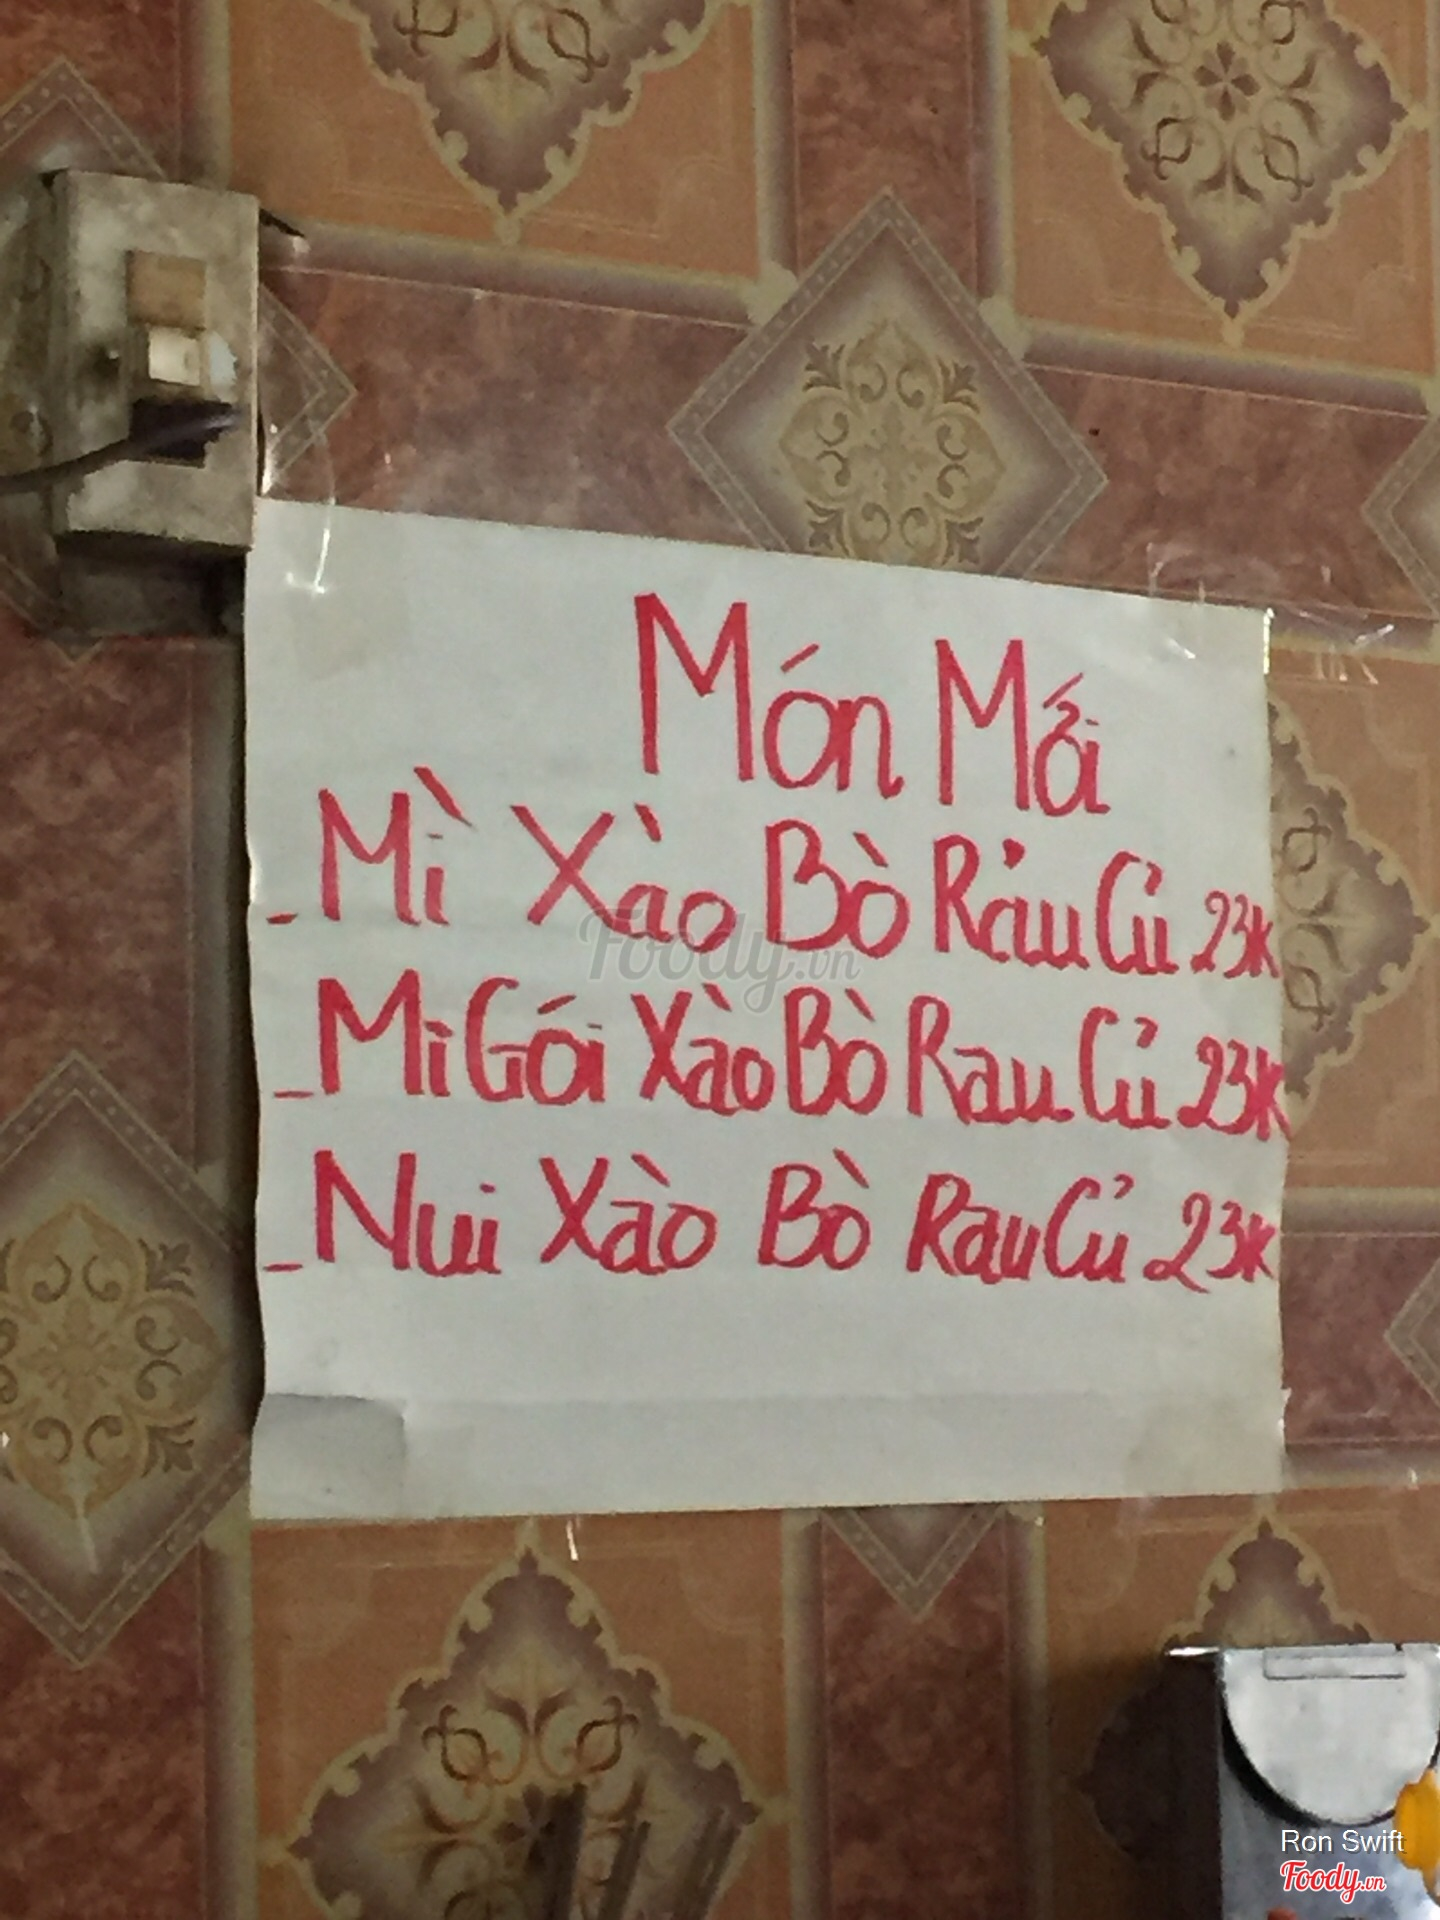 Món Mới
- Mì Xào Bò Rảu Củ 23K
- Mì Gói Xào Bò Rau Củ 23K
- Nui Xào Bò Rau Củ 23K
Foody.vn
Ron Swift
Foody.vn